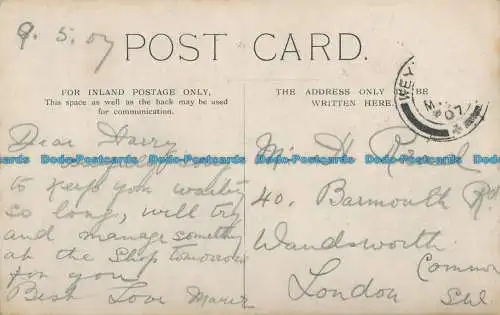 9.5.07
POST CARD.
FOR INLAND POSTAGE ONLY,
This space as well as the back may be used
for communication.
THE ADDRESS ONLY TO BE
WRITTEN HERE.
WEY
MY
07
Dear Harry
to keep you waiting
so long, will try
and manage something
at the shop tomorrow
for you
Best Love Marie
Mr H
40. Barmouth Rd
Wandsworth
Common
London SW.
Dodo-Postcards Dodo-Postcards Dodo-Postcards Dodo-Postcards Dodo-Postcards Dodo-Postcards